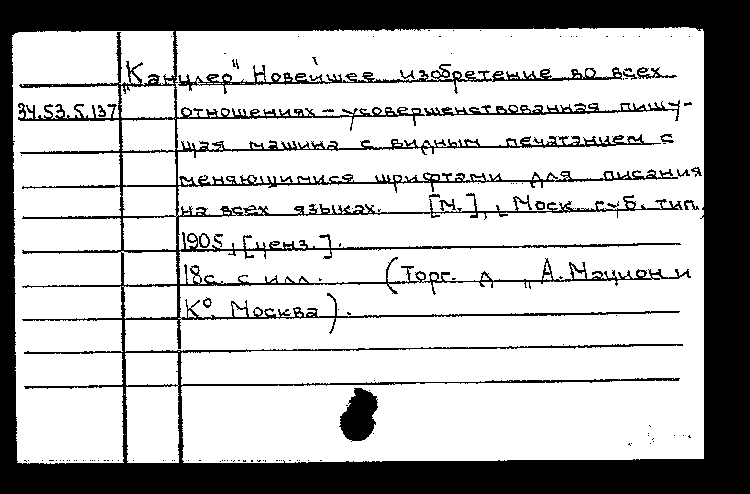 „Канцлер“. Новейшее изобретение во всех
34.53.5.137 отношениях – усовершенствованная пишу-
щая машина с видным печатанием с
меняющимися шрифтами для писания
на всех языках. [М.], Моск. губ. тип.,
1905, [ценз.].
18с. с илл. (Торг. д. „А. Мацион и
К°. Москва).